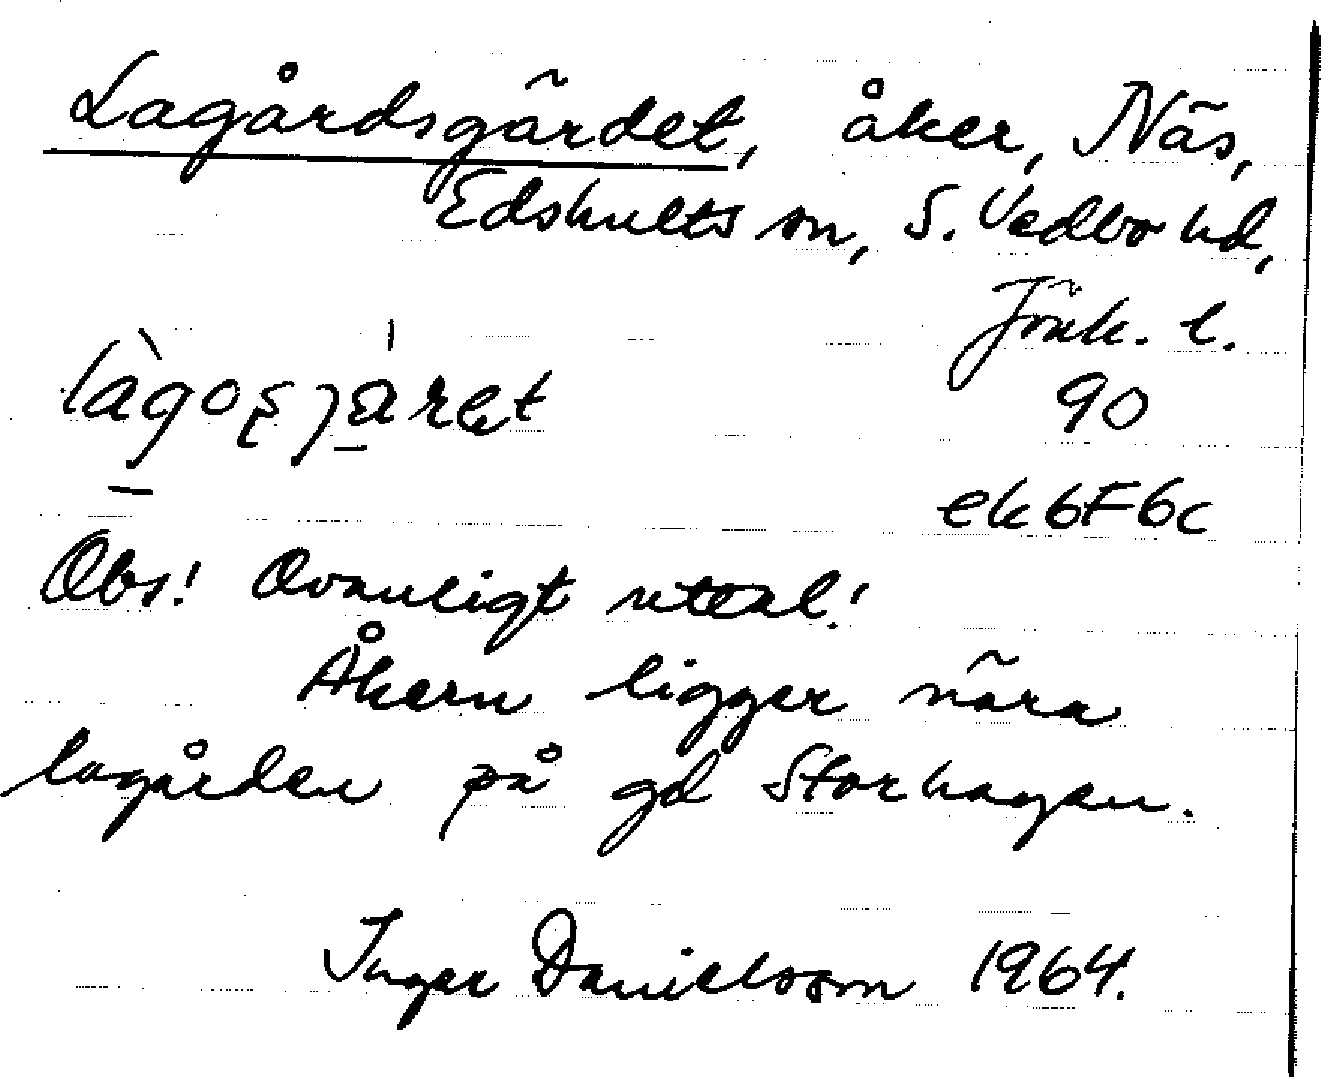 Lagårdsgärdet, åker, Näs,
Edshults sn, S. Vedbo hd,
Jönk. l.
90
ek 6F6c
Obs! Ovanligt uttal!
Åkern ligger nära
lagården på gd Storhagen.
Inger Danielsson 1964.